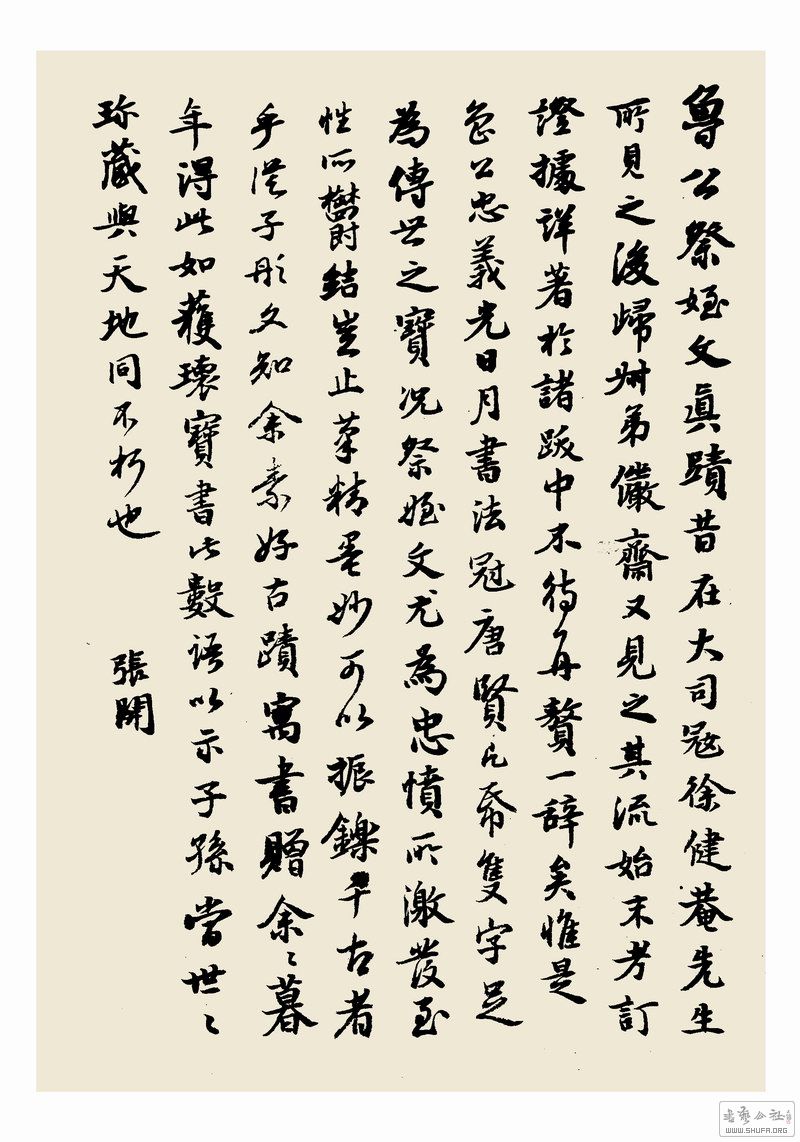 魯公祭姪文真蹟昔在大司寇徐健菴先生
所見之後歸州弟儼齋又見之其流始末考訂
證據詳著於諸跋中不待再贅一辭矣惟是
魯公忠義光日月書法冠唐賢片帋隻字足
為傳世之寶況祭姪文尤為忠憤所激發至
性所鬱結豈止筆精墨妙可以振鑠千古者
乎從子彤文知余素好古蹟寓書贈余〻暮
年得此如獲瓌寶書此數語以示子孫當世〻
珍藏與天地同不朽也
張
書藝公社
WWW.SHUFA.ORG